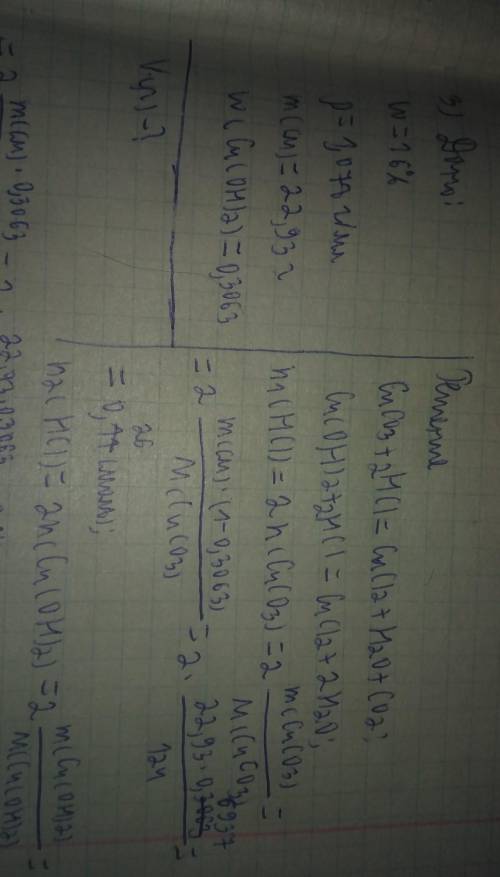 3) Дано:
w = 16%
ρ = 1,078 г/мл
m(см) = 22,93 г
w(Cu(OH)2) = 0,3063
V(р) - ?
Решение
CuCO3 + 2HCl = CuCl2 + H2O + CO2;
Cu(OH)2 + 2HCl = CuCl2 + 2H2O;
n1(HCl) = 2n(CuCO3) = 2 m(CuCO3) / M(CuCO3) =
= 2 m(см)·(1-0,3063) / M(CuCO3) = 2· 22,93·0,6937 / 124 =
= 0,26 (моль);
n2(HCl) = 2n(Cu(OH)2) = 2 m(Cu(OH)2) / M(Cu(OH)2) =
= 2 m(см)·0,3063 = 2· 22,93·0,3063